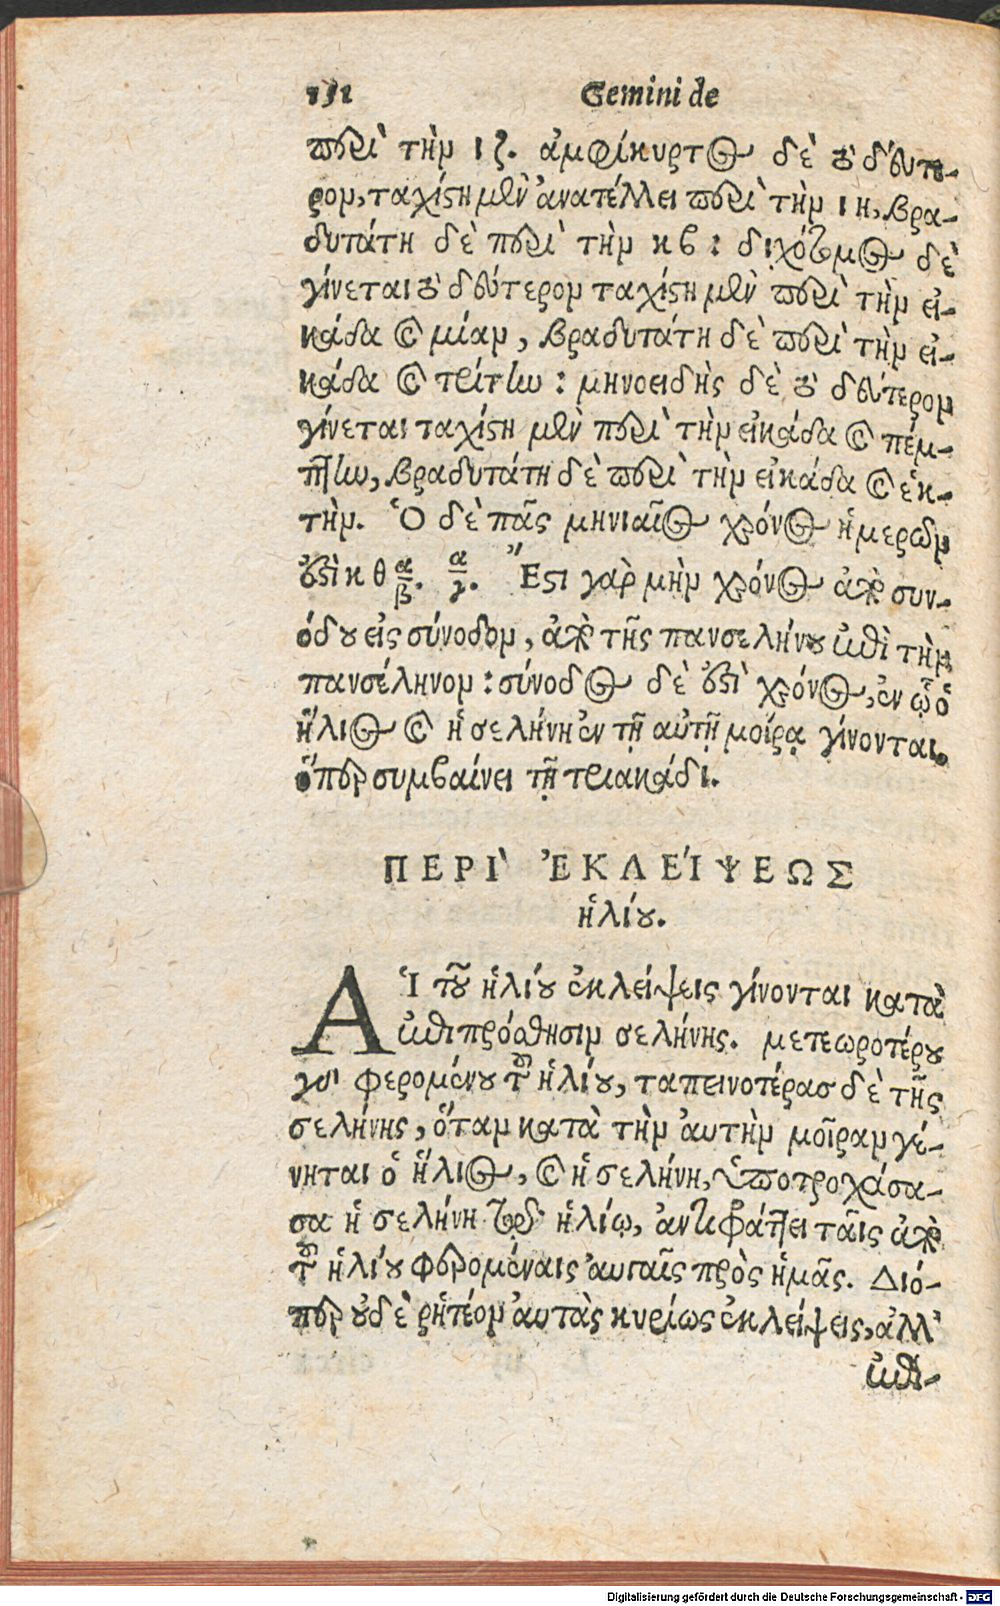 152 Gemini de
περὶ τὴν ιζ. ἀμφίκυρτος δὲ τὸ δεύτε-
ρον, ταχίστη μὲν ἀνατέλλει περὶ τὴν ιη, βρα-
δυτάτη δὲ περὶ τὴν κβ: διχότομος δὲ
γίνεται τὸ δεύτερον ταχίστη μὲν περὶ τὴν εἰ-
κάδα καὶ μίαν, βραδυτάτη δὲ περὶ τὴν εἰ-
κάδα καὶ τρίτην: μηνοειδὴς δὲ τὸ δεύτερον
γίνεται ταχίστη μὲν περὶ τὴν εἰκάδα καὶ πέμ-
πτην, βραδυτάτη δὲ περὶ τὴν εἰκάδα καὶ ἕκ-
την. Ὁ δὲ πᾶς μηνιαῖος χρόνος ἡμερῶν
ἐστὶ κθ α/β. α/γ. Ἔστι γὰρ μὴν χρόνος ἀπὸ συν-
όδου εἰς σύνοδον, ἀπὸ τῆς πανσελήνου ἐπὶ τὴν
πανσέληνον: σύνοδος δὲ ἐστὶ χρόνος, ἐν ᾧ ὁ
ἥλιος καὶ ἡ σελήνη ἐν τῇ αὐτῇ μοίρᾳ γίνονται.
ὅπερ συμβαίνει τῇ τριακάδι.
ΠΕΡῚ ἘΚΛΕΊΨΕΩΣ
ἡλίου.
Αἱ τοῦ ἡλίου ἐκλείψεις γίνονται κατὰ
ἐπιπρόσθησιν σελήνης. μετεωροτέρου
γὰρ φερομένου τοῦ ἡλίου, ταπεινοτέρας δὲ τῆς
σελήνης, ὅταν κατὰ τὴν ἀυτὴν μοῖραν γέ-
νηται ὁ ἥλιος, καὶ ἡ σελήνη, ὑποτροχάσα-
σα ἡ σελήνη τῷ ἡλίῳ, ἀντιφράττει ταῖς ἀπὸ
τοῦ ἡλίου φερομέναις ἀυγαῖς πρὸς ἡμᾶς. Διό-
περ οὐδὲ ῥητέον ἀυτὰς κυρίως ἐκλείψεις, ἀλλ'
ἐπι-
Digitalisierung gefördert durch die Deutsche Forschungsgemeinschaft - DFG